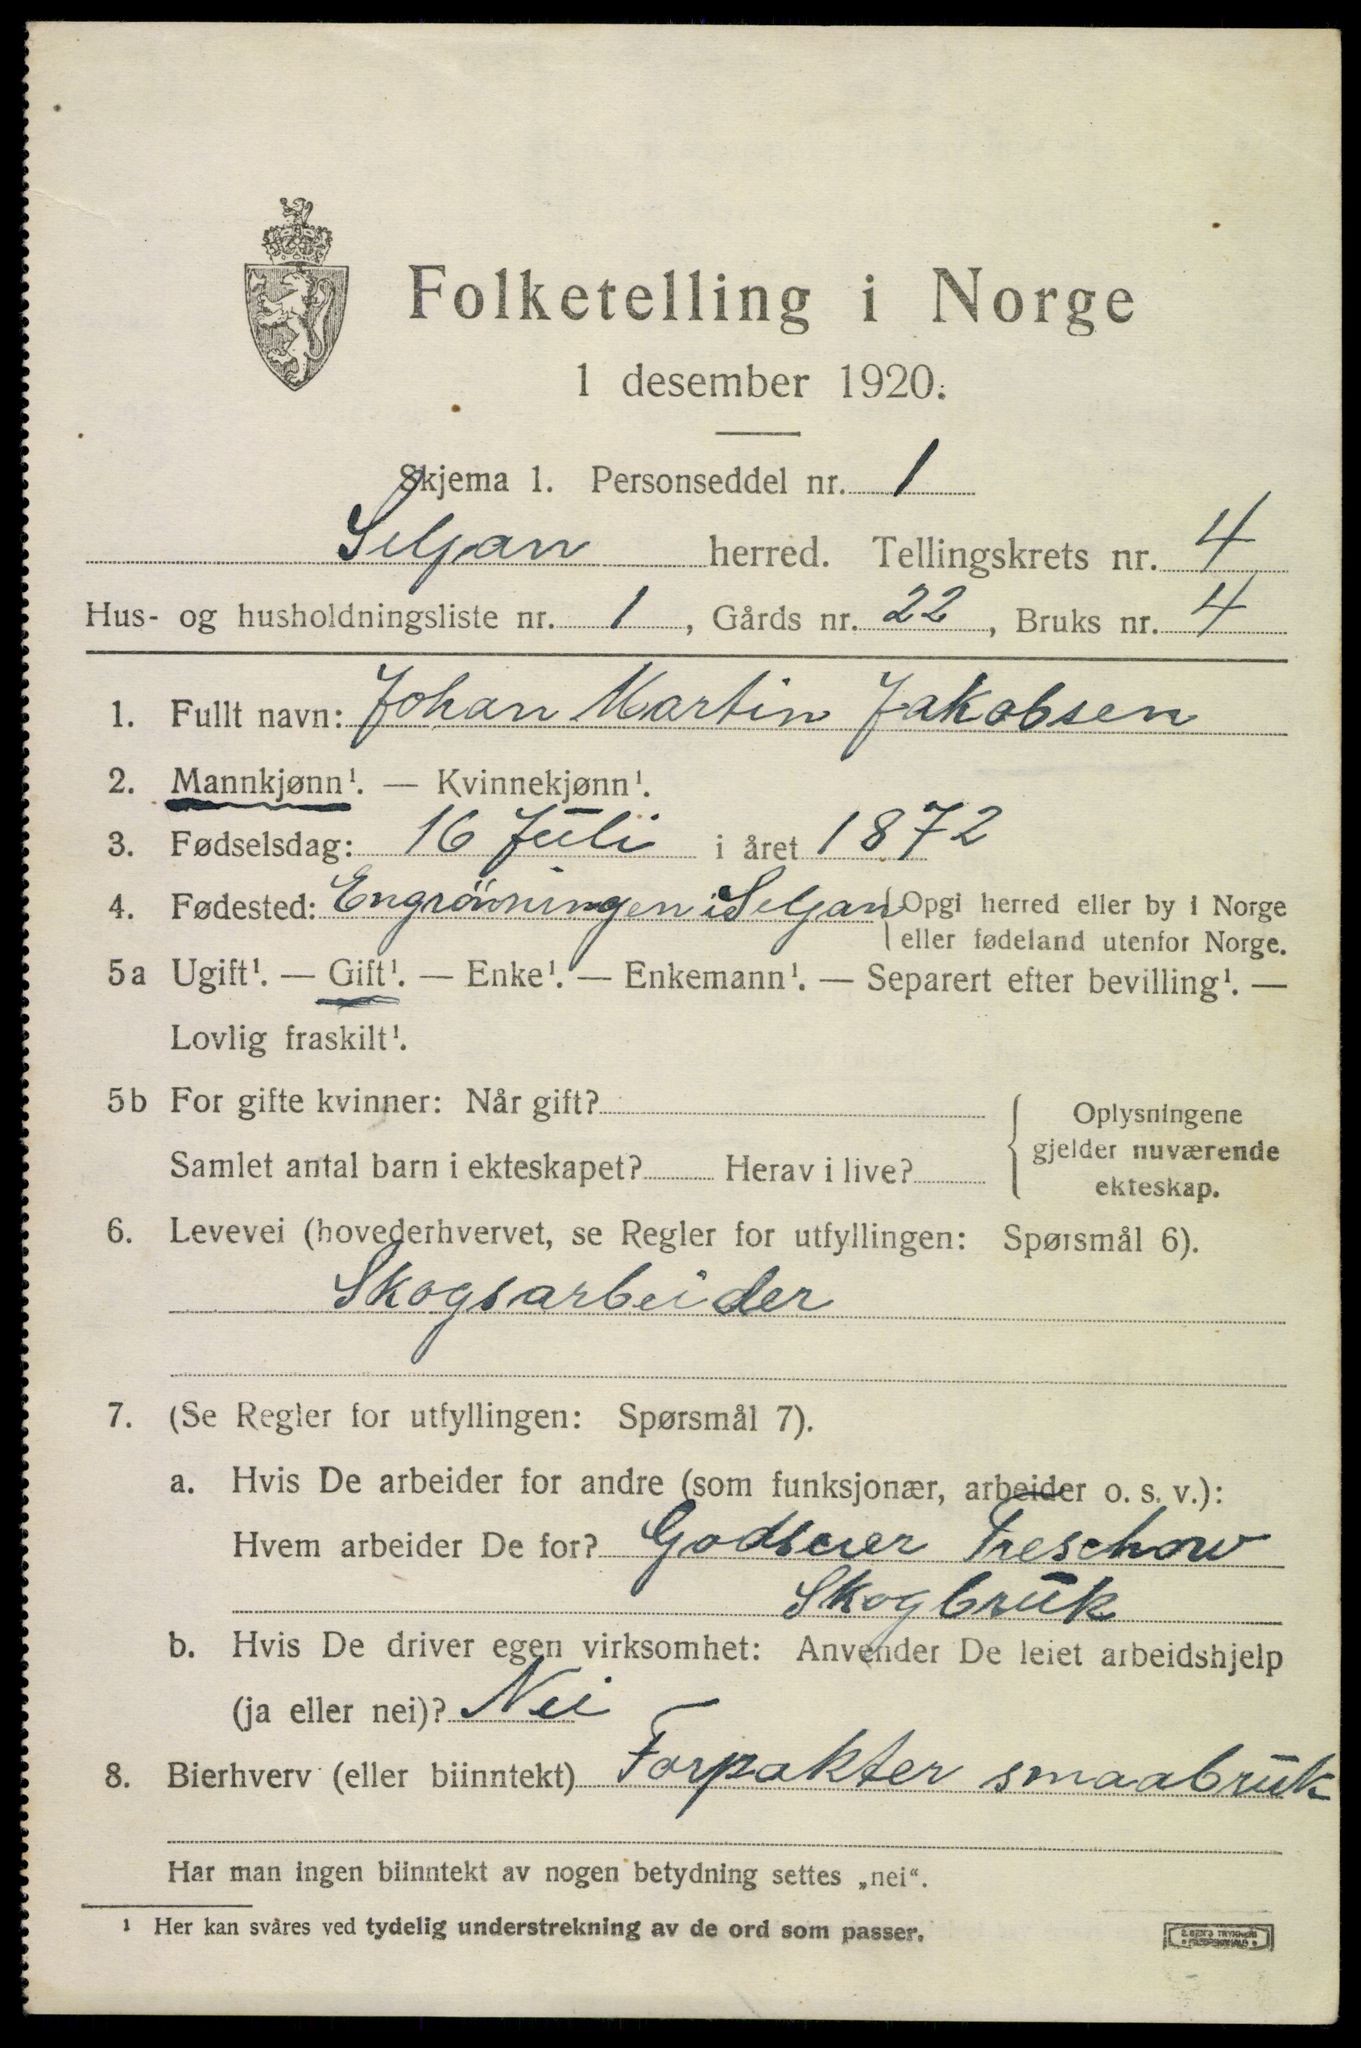 Folketelling i Norge
1 desember 1920.
Skjema 1. Personseddel nr. 1
Seljan herred. Tellingskrets nr. 4
Hus- og husholdningsliste nr. 1, Gårds nr. 22, Bruks nr. 4
1. Fullt navn: Johan Martin Jakobsen
2. Mannkjønn¹. — Kvinnekjønn¹.
3. Fødselsdag: 16 Juli i året 1872
4. Fødested: i Seljan { Opgi herred eller by i Norge
eller fødeland utenfor Norge.
5a Ugift¹. — Gift¹. — Enke¹. — Enkemann¹. — Separert efter bevilling¹. —
Lovlig fraskilt¹.
5b For gifte kvinner: Når gift?
Samlet antal barn i ekteskapet? Herav i live?
{ Oplysningene
gjelder nuværende
ekteskap.
6. Levevei (hovederhvervet, se Regler for utfyllingen: Spørsmål 6).
Skogsarbeider
7. (Se Regler for utfyllingen: Spørsmål 7).
a. Hvis De arbeider for andre (som funksjonær, arbeider o. s. v.):
Hvem arbeider De for? Godseier Treschow
Skogbruk
b. Hvis De driver egen virksomhet: Anvender De leiet arbeidshjelp
(ja eller nei)? Nei
8. Bierhverv (eller biinntekt) Forpakter smaabruk
Har man ingen biinntekt av nogen betydning settes „nei“.
¹ Her kan svåres ved tydelig understrekning av de ord som passer.